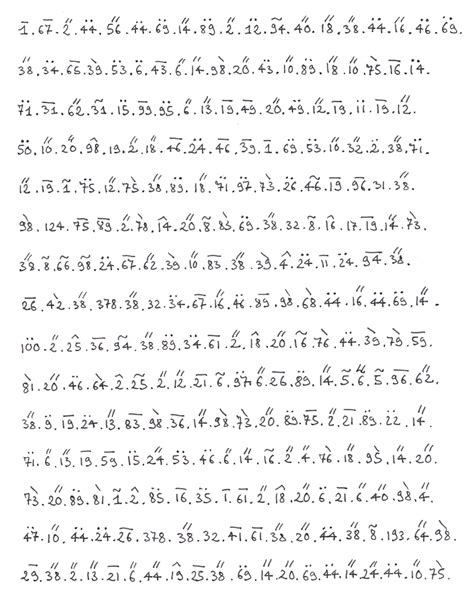 1.67.2.44.56.44.69.14.89.2.12.94.40.18.38.44.16.46.69.
38.34.65.39.53.6.43.6.14.98.20.43.10.89.18.10.75.16.14.
71.31.62.31.15.99.95.6.13.19.49.20.49.12.19.11.19.12.
50.10.20.98.19.2.18.46.24.46.39.1.69.53.10.32.2.38.71.
12.19.1.75.12.75.38.89.18.71.97.73.26.46.19.96.31.38.
98.124.75.89.2.78.14.20.8.83.69.38.32.8.16.17.19.14.73.
38.8.66.98.24.67.62.39.10.83.38.39.4.24.11.24.94.38.
26.42.38.378.38.32.34.67.16.46.89.98.68.44.16.44.69.14.
100.2.25.36.94.38.89.34.61.2.18.20.16.76.44.39.79.59.
81.20.46.64.2.25.2.12.21.6.97.6.26.89.14.5.6.5.96.62.
38.9.19.24.13.83.98.36.14.98.73.20.89.75.2.21.89.22.14.
71.6.13.19.59.15.24.53.46.6.14.16.2.4.76.18.95.14.20.
73.20.89.81.1.2.85.16.35.1.61.2.18.20.6.21.6.40.98.4.
47.10.44.24.26.378.38.32.41.61.38.20.44.38.8.193.64.98.
29.38.2.13.21.6.44.19.25.38.69.14.20.69.44.14.24.44.10.75.